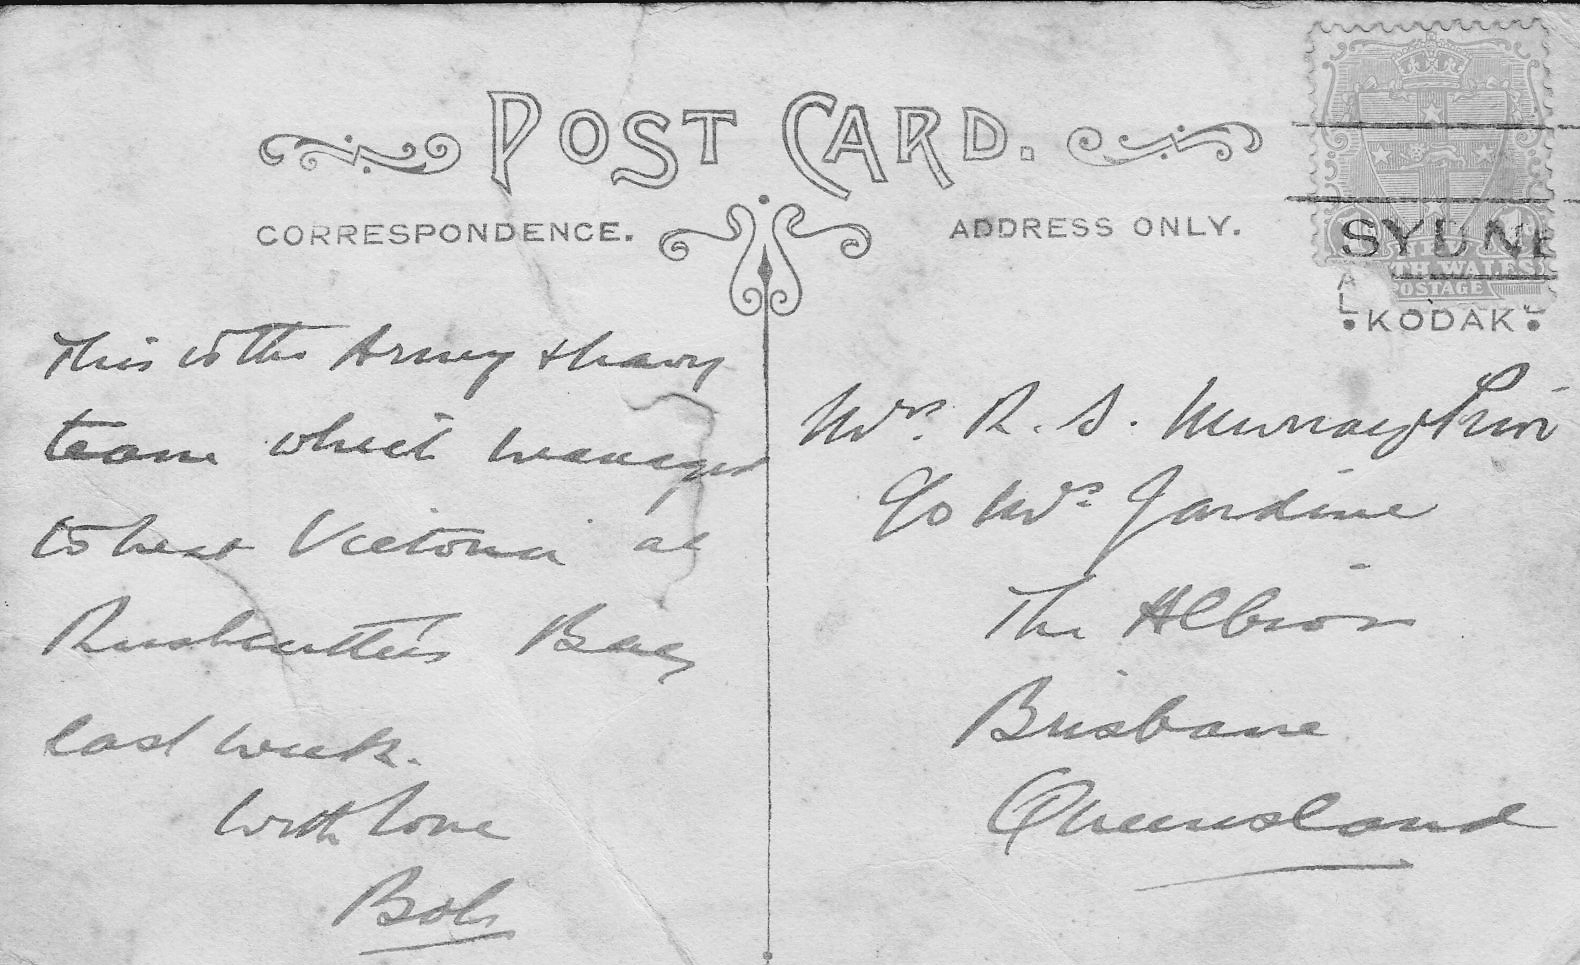 POST CARD.
CORRESPONDENCE.
ADDRESS ONLY.
SYDNE
TH WALES
POSTAGE
KODAK
This is the Army & Navy
team which managed
to beat Victoria at
Rushcutters Bay
last week.
With love
Bob
Mrs. R. S. Murray Prior
C/o Mrs Jardine
The Albion
Brisbane
Queensland